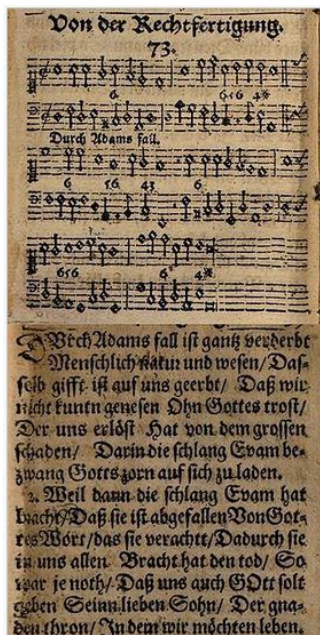 Von der Rechtfertigung.
73.
6 6 5 6 4 #
Durch Adams fall.
6 5 6 4 3 6
6 5 6 6 4 #
DUrch Adams fall ist gantz verderbt
Menschlich natur und wesen/ Das-
selb gifft ist auf uns geerbt/ Daß wir
nicht kuntn genesen Ohn Gottes trost/
Der uns erlöst Hat von dem grossen
schaden/ Darin die schlang Evam be-
zwang Gotts zorn auf sich zu laden.
2. Weil dann die schlang Evam hat
bracht/ Daß sie ist abgefallen Von Got-
tes Wort/ das sie veracht/ Dadurch sie
in uns allen Bracht hat den tod/ So
war je noth/ Daß uns auch GOtt solt
geben Seinn lieben Sohn/ Der gna-
den thron/ In dem wir möchten leben.